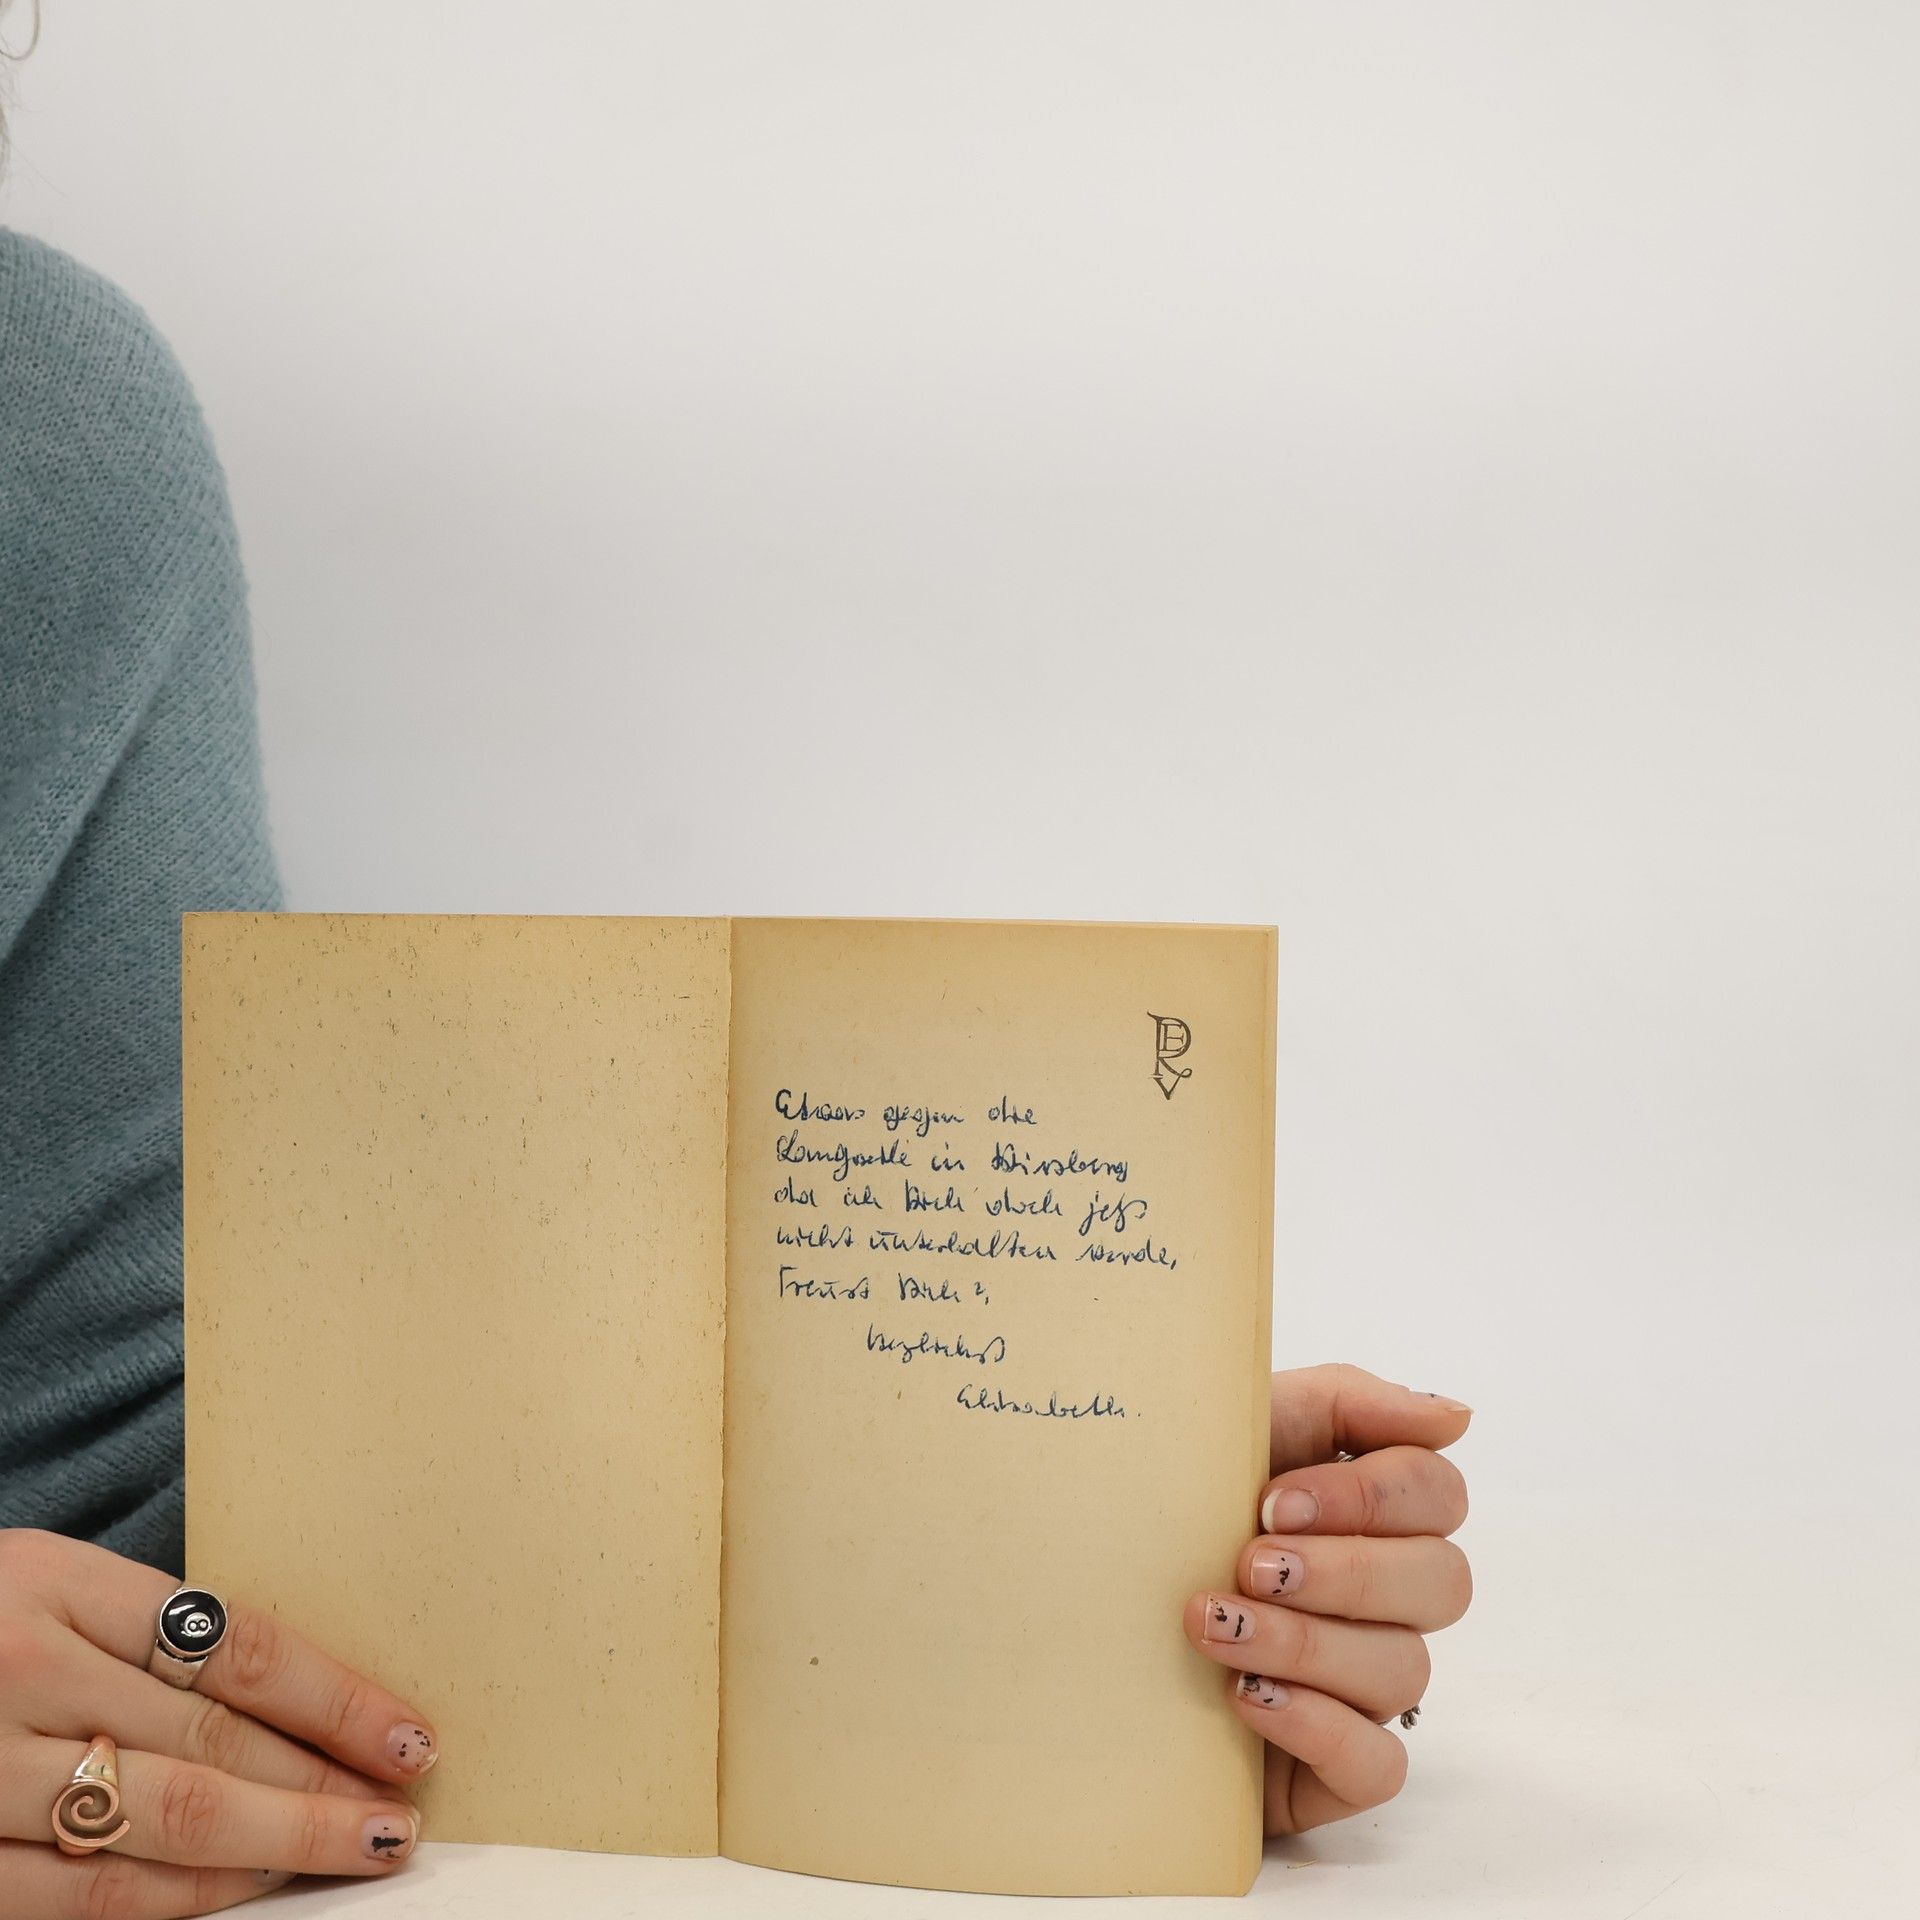 Etwas gegen die
Langweile in
da ich Dich doch jetzt
nicht unterhalten werde,
Freust Dich?,
Herzlichst
Elisabeth.
8